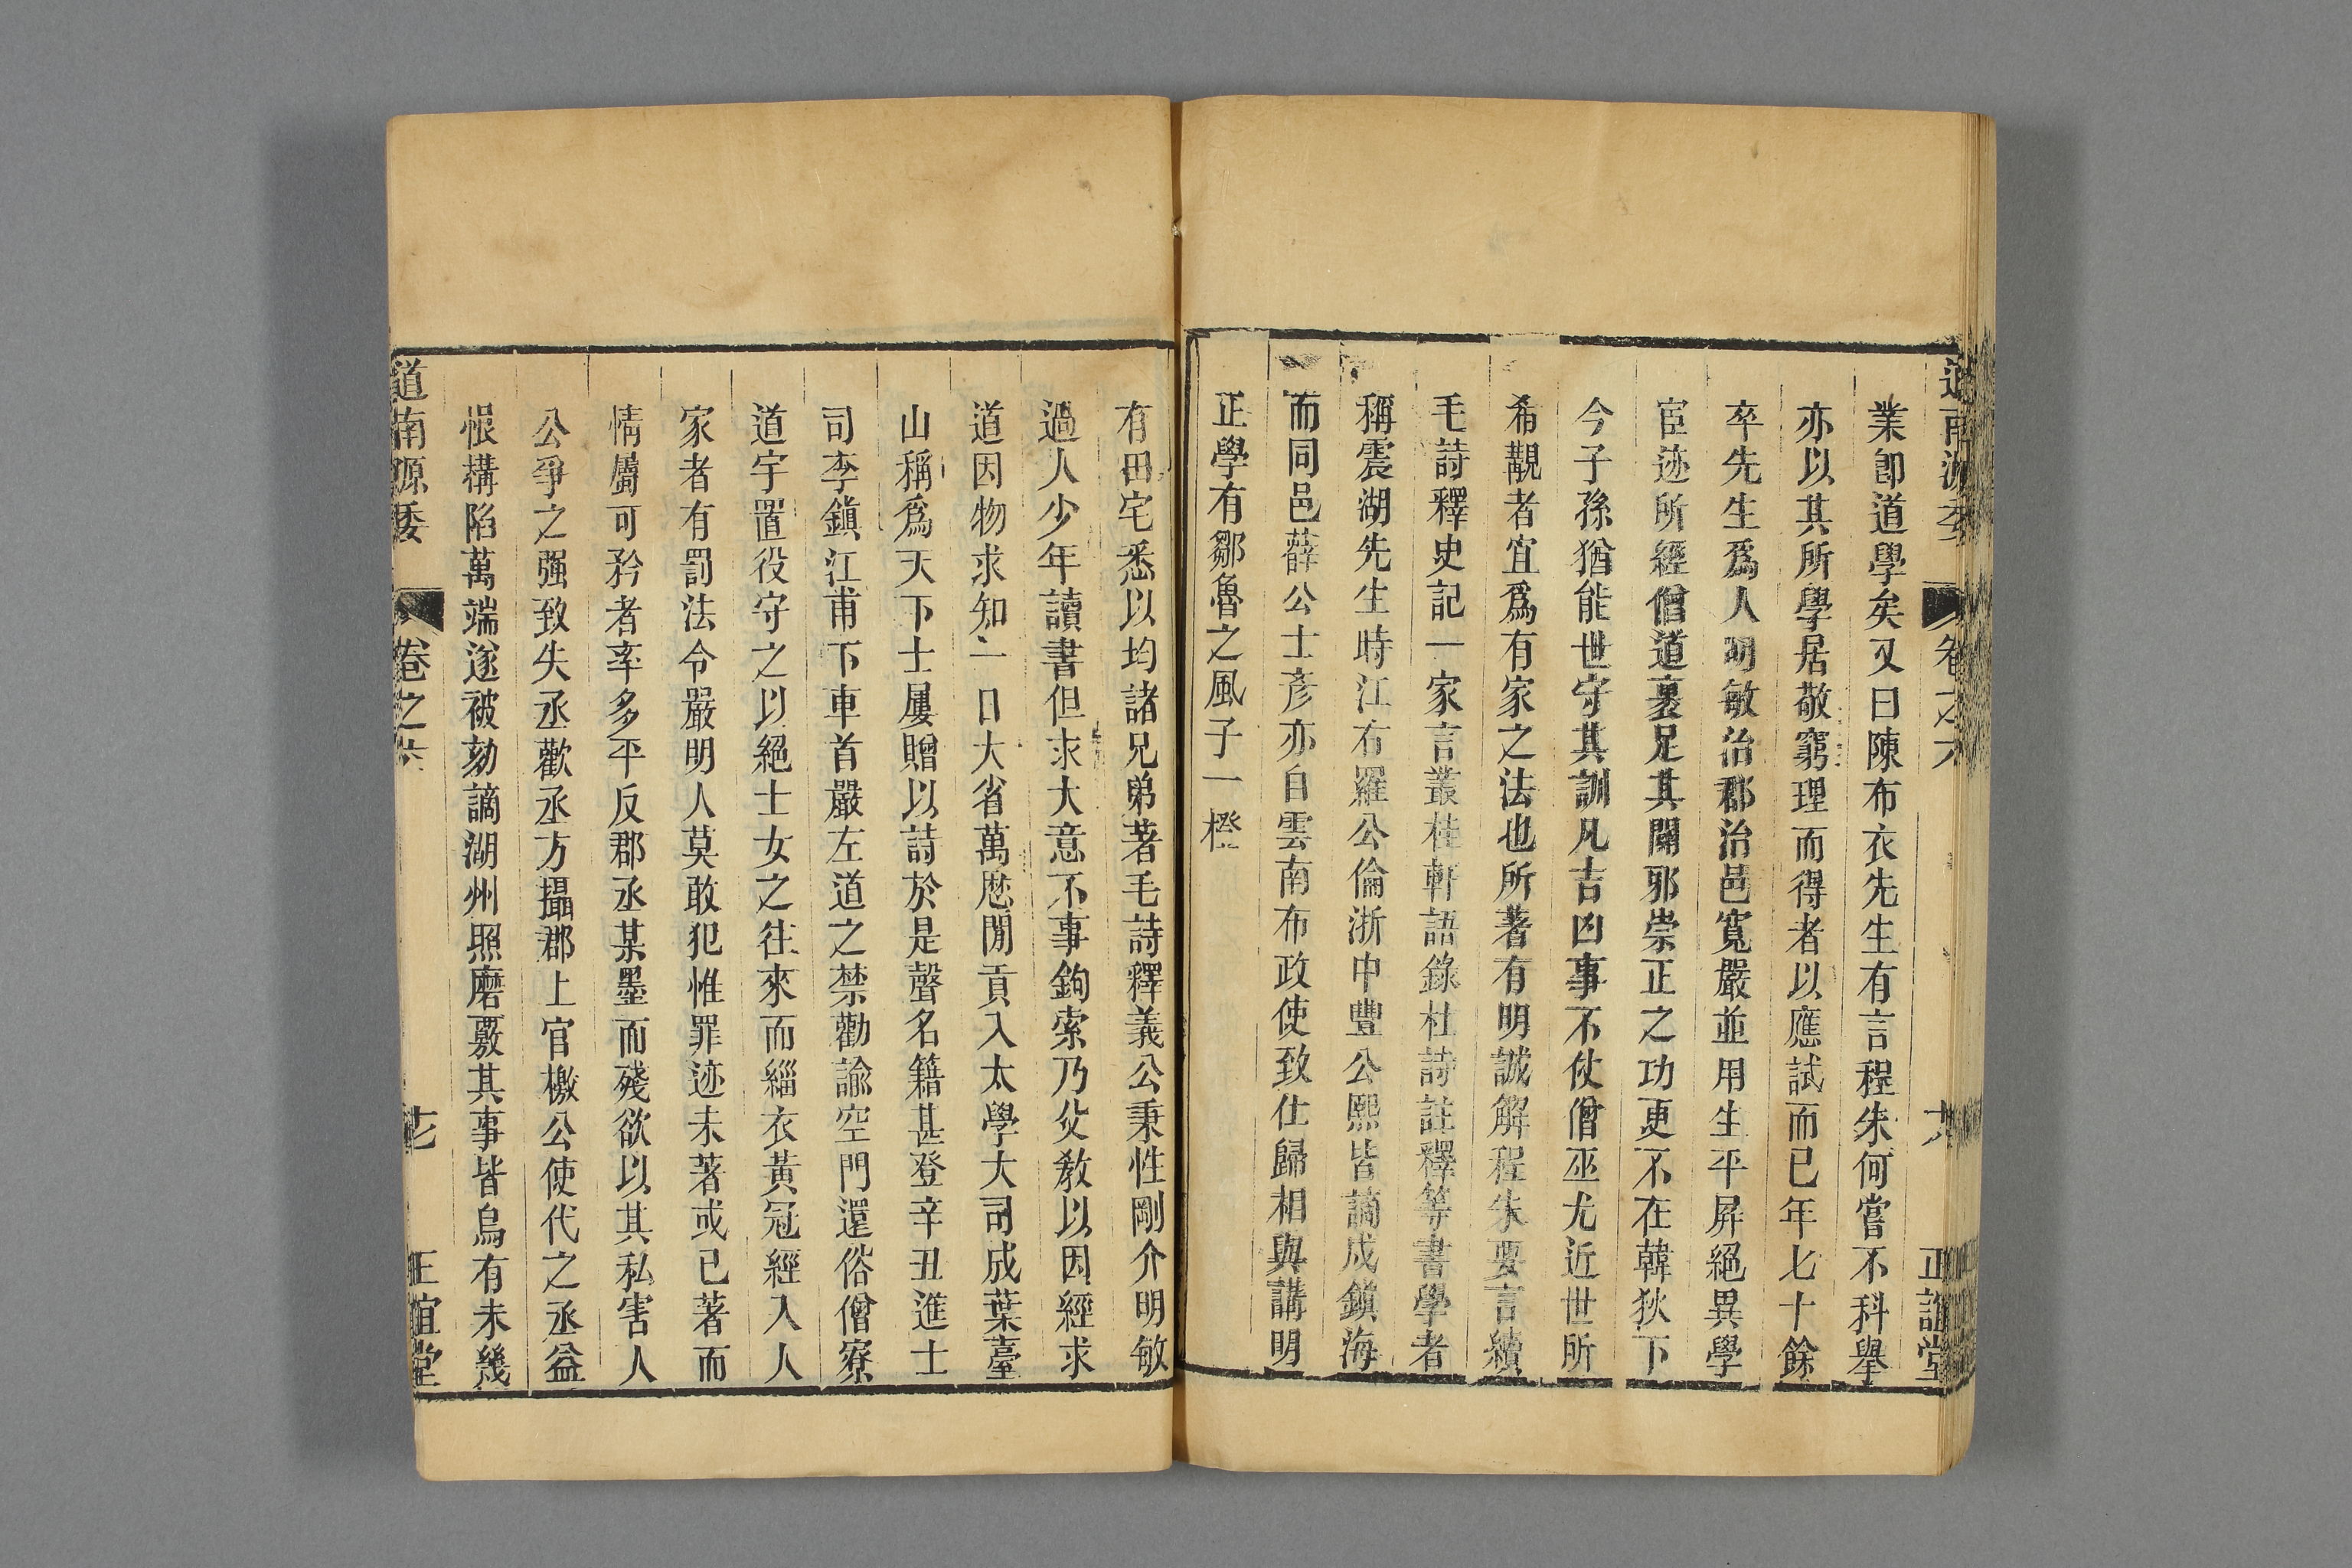 道南源委 卷之六 十六 正誼堂
業卽道學矣又曰陳布衣先生有言程朱何嘗不科舉
亦以其所學居敬窮理而得者以應試而已年七十餘
卒先生爲人明敏治郡治邑寬嚴並用生平屏絕異學
宦迹所經僧道裹足其闢邪崇正之功更不在韓狄下
今子孫猶能世守其訓凡吉凶事不使僧巫尤近世所
希覯者宜爲有家之法也所著有明誠解程朱要言續
毛詩釋史記一家言叢桂軒語錄杜詩註釋等書學者
稱震湖先生時江右羅公倫浙中豐公熙皆謫戍鎮海
而同邑薛公士彥亦自雲南布政使致仕歸相與講明
正學有鄒魯之風子一橙
有田宅悉以均諸兄弟著毛詩釋義公秉性剛介明敏
過人少年讀書但求大意不事鉤索乃父敎以因經求
道因物求知一日大省萬曆閒貢入太學大司成葉臺
山稱爲天下士屢贈以詩於是聲名籍甚登辛丑進士
司李鎮江甫下車首嚴左道之禁勸諭空門還俗僧寮
道宇置役守之以絕士女之往來而緇衣黃冠經入人
家者有罰法令嚴明人莫敢犯惟罪迹未著或已著而
情屬可矜者率多平反郡丞某墨而殘欲以其私害人
公爭之强致失丞歡丞方攝郡上官檄公使代之丞益
恨構陷萬端遂被劾謫湖州照磨覈其事皆烏有未幾
道南源委 卷之六 十七 正誼堂